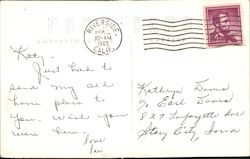 POST CARD
CORRESPONDENCE
RIVERSIDE,
10-AM
1965
CALIF.
Katy-
Just had to
send my old
home place to
you. Wish you
were here.
Love
Kathryn Davis
% Earl Davis
827 Lafayette Ave
Story City, Iowa